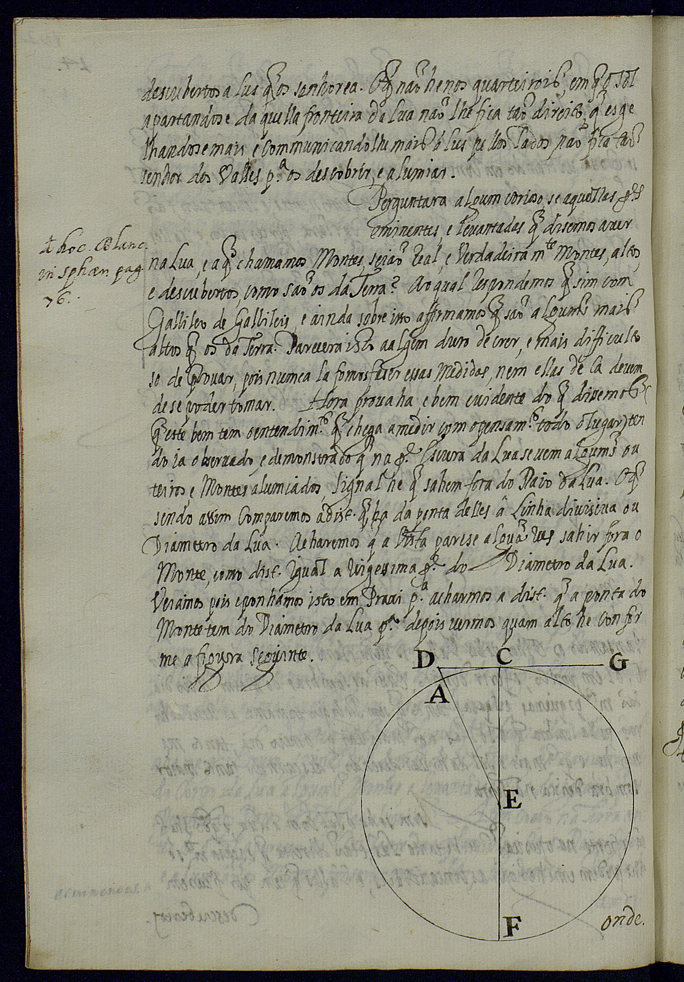 descubertos a lus q̃ os senhorea. O q̃ não he nos quarteirois, em q̃ o Sol
apartandose daquella fronteira da Lua não lhe fica tão direito, q̃ esge
lhandose mais e communicandolhe mais o lus pellos lados não fica tão
senhor dos Valles p.ª os descobrir, e alumiar.
Perguntara algum corioso, se aquellas p.tes
eminentes, e levantadas q̃ disemos aver
ad hoc. Blanc.
in sphær. pag.
76.
na Lua, e a q̃ chamamos Montes, sejão real, e Verdadeira m.te Montes, altos,
e descubertos, como são os da Terra? Ao qual respondemos q̃ sim com
Gallileo de Gallileis, e ainda sobre isto affirmamos q̃ são alguns mais
altos q̃ os da Terra. Parecera isto a algum duro de crer, e mais difficulto
so de provar, pois nunca la fomos fazer essas medidas, nem ellas de ca devem
de se poder tomar. Hora prova ha e bem evidente do q̃ disemos
q̃ este bem tem o entendim.to q̃ chega a medir com o pensam.to todo o lugar) ten
do ja observado, e demonstrado q̃ na p.te escura da Lua se vem alguns ou
teiros, e Montes alumiados, signal he q̃ sahem fora do Raio da Lua. O q̃
sendo assim comparemos a dist.ª q̃ ha da ponta delles á Linha divisiva ou
Diametro da Lua. Acharemos q̃ a vista parese algũa ves sahir fora o
Monte, como dist.ª igual a vigessima p.te do Diametro da Lua.
Vejamos pois e ponhamos isto em Praxi p.ª acharmos a dist.ª q̃ a ponta do
Monte tem do Diametro da Lua p.ª depois vermos quam alto he confor
me a figura seguinte.
D C G
A
E
F
onde.